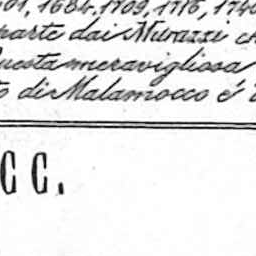 1684, 1709, 1716, 174
parte dai Murazzi
Questa meravigliosa
di Malamocco é
CC.